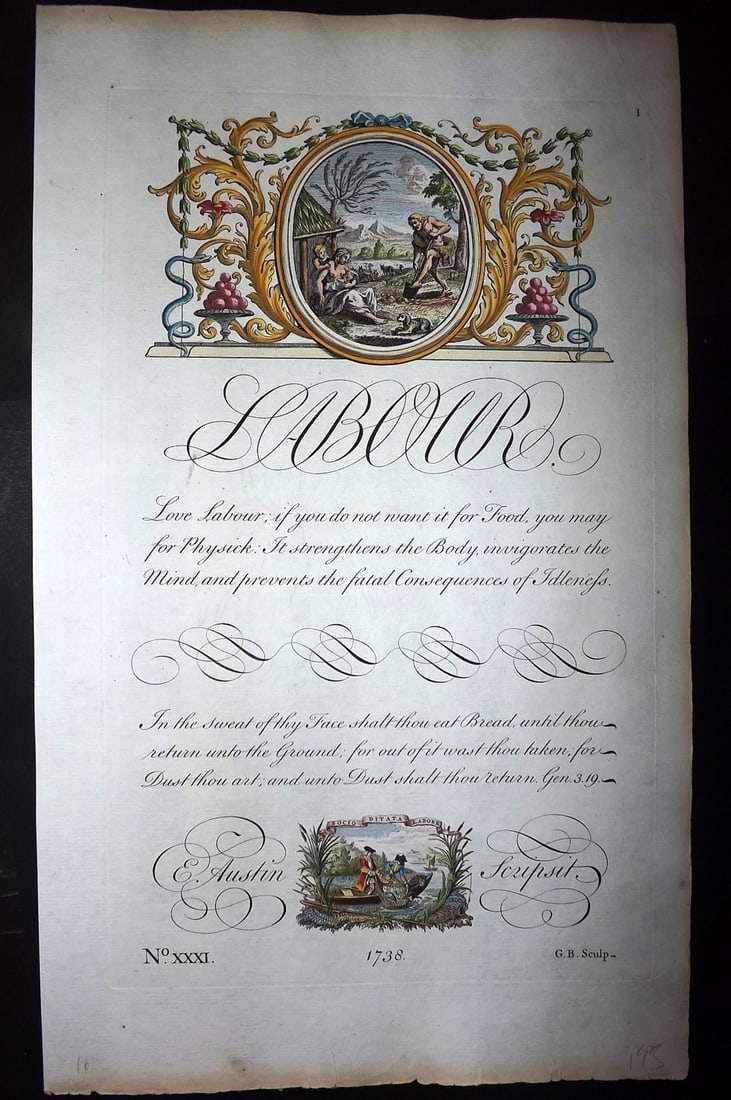 1
LABOUR.
Love Labour; if you do not want it for Food, you may
for Physick: It strengthens the Body, invigorates the
Mind, and prevents the fatal Consequences of Idleneſs.
In the sweat of thy Face shalt thou eat Bread, until thou
return unto the Ground; for out of it wast thou taken; for
Dust thou art; and unto Dust shalt thou return. Gen. 3.19.
SOCIO DITATA LABORE
E. Austin Scripsit.
No. XXXI. 1738. G.B. Sculp
16